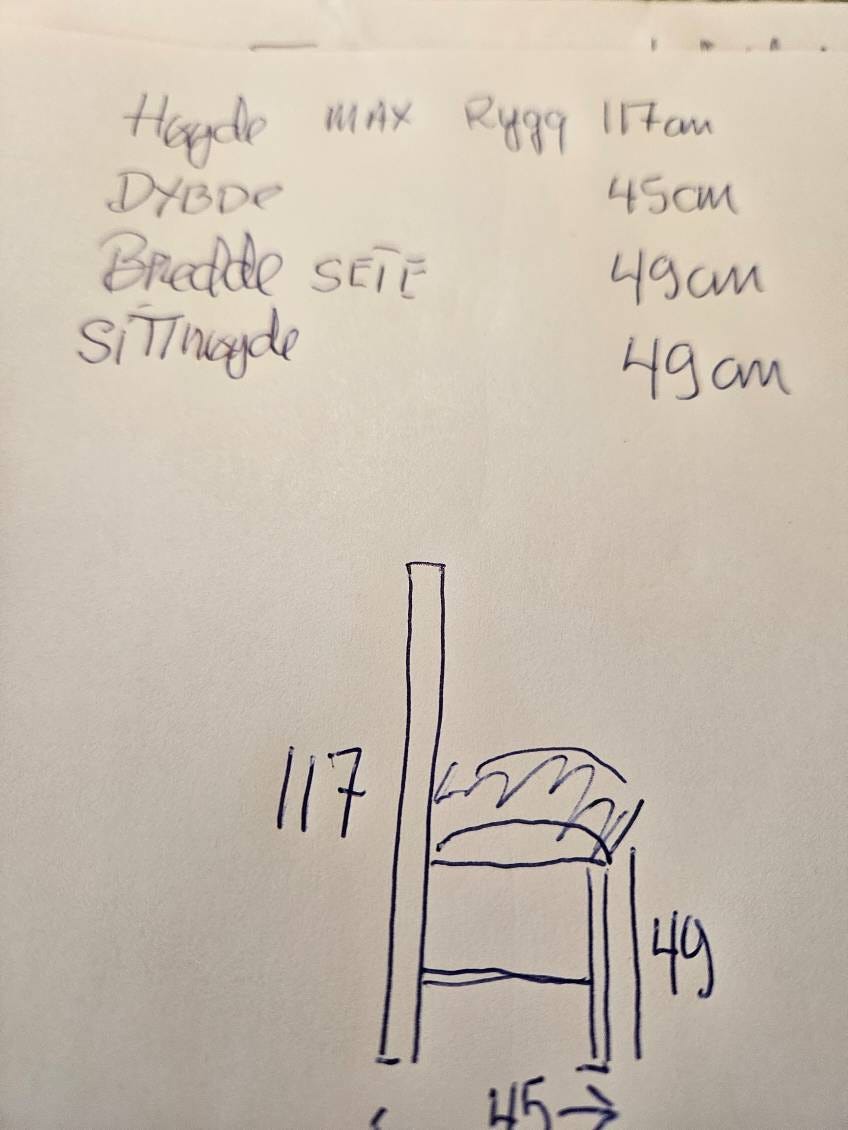 Høyde MAX Rygg 117cm
DYBDe 45cm
Bredde SETE 49cm
SiTTHøyde 49cm
117
49
45